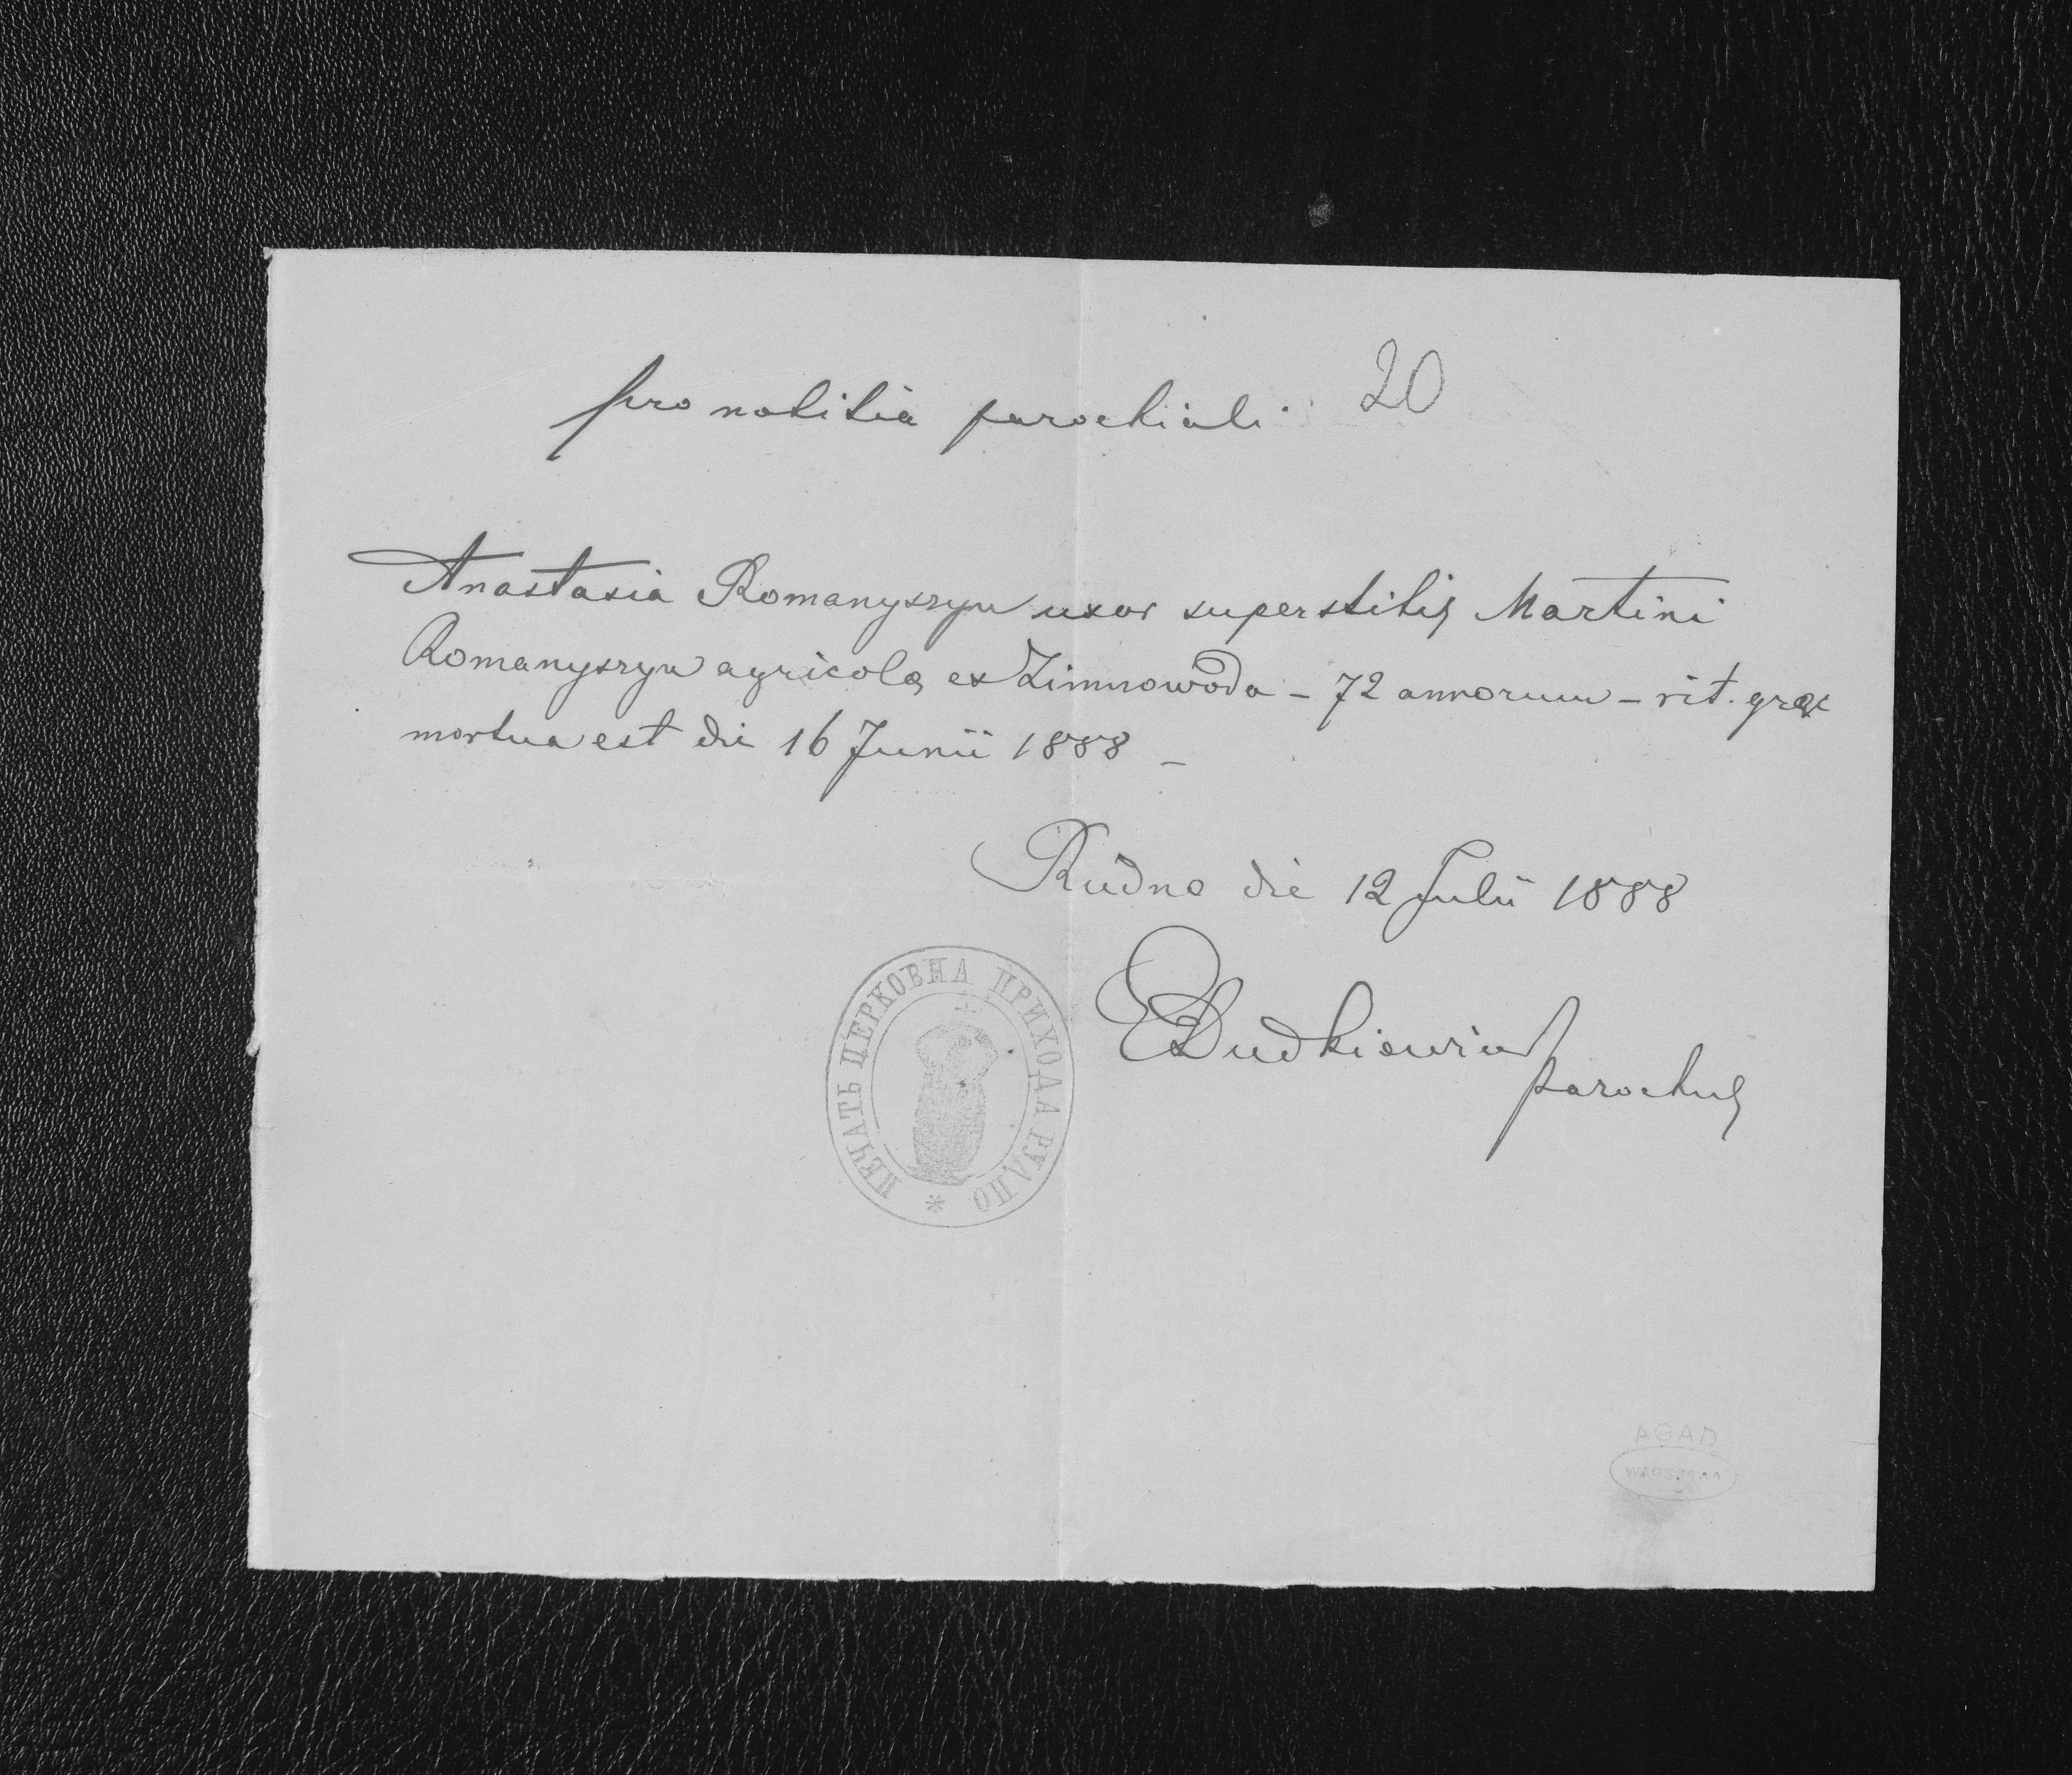 pro notitia parochiali 20
Anastasia Romanyszyn uxor superstitis Martini
Romanyszyn agricolæ ex Zimnowoda – 72 annorum – rit. græc
mortua est die 16 Junii 1888 –
Rudno die 12 Julii 1888
EDudkiewicz
parochus
ПЕЧАТЬ ЦЕРКОВНА ПРИХОДА РУДНО *
AGAD
WARSZAWA